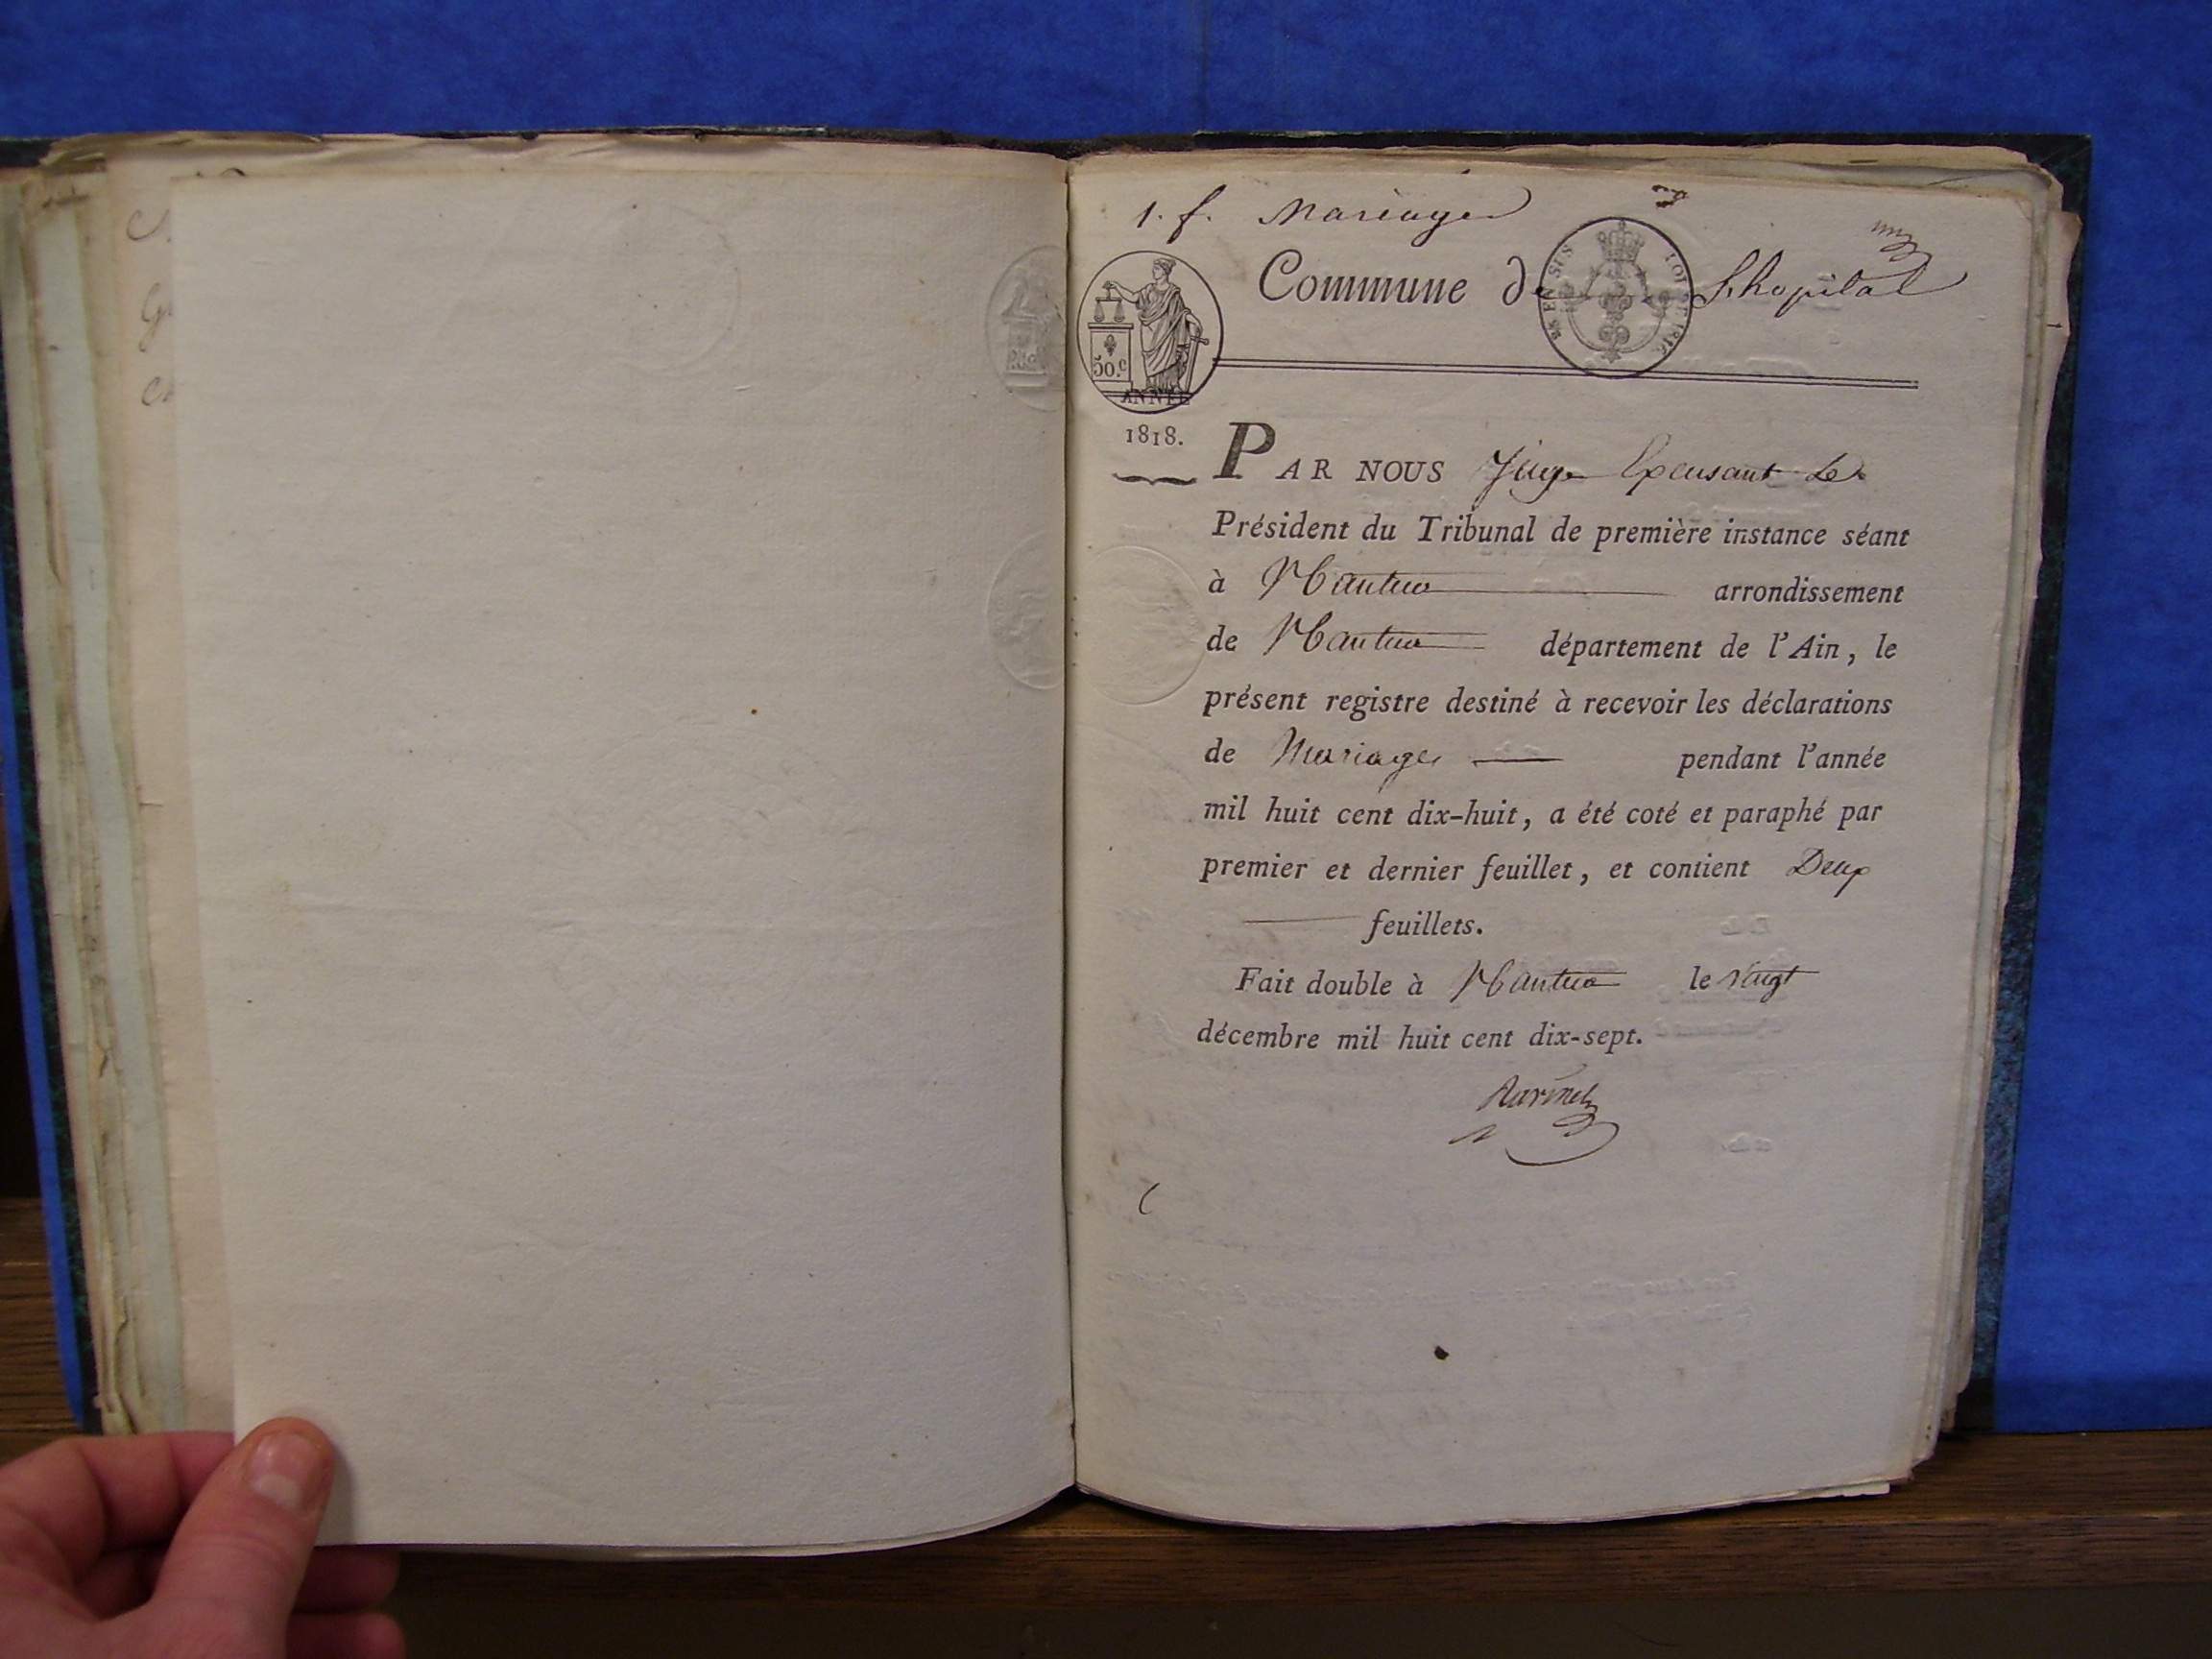 1. f. Mariages
Commune de Lhopital
50.c
ANNÉE
1818.
PAR NOUS Juge Expensant Le
Président du Tribunal de première instance séant
à Nantua arrondissement
de Nantua département de l'Ain, le
présent registre destiné à recevoir les déclarations
de Mariages pendant l'année
mil huit cent dix-huit, a été coté et paraphé par
premier et dernier feuillet, et contient Deux
feuillets.
Fait double à Nantua le vingt
décembre mil huit cent dix-sept.